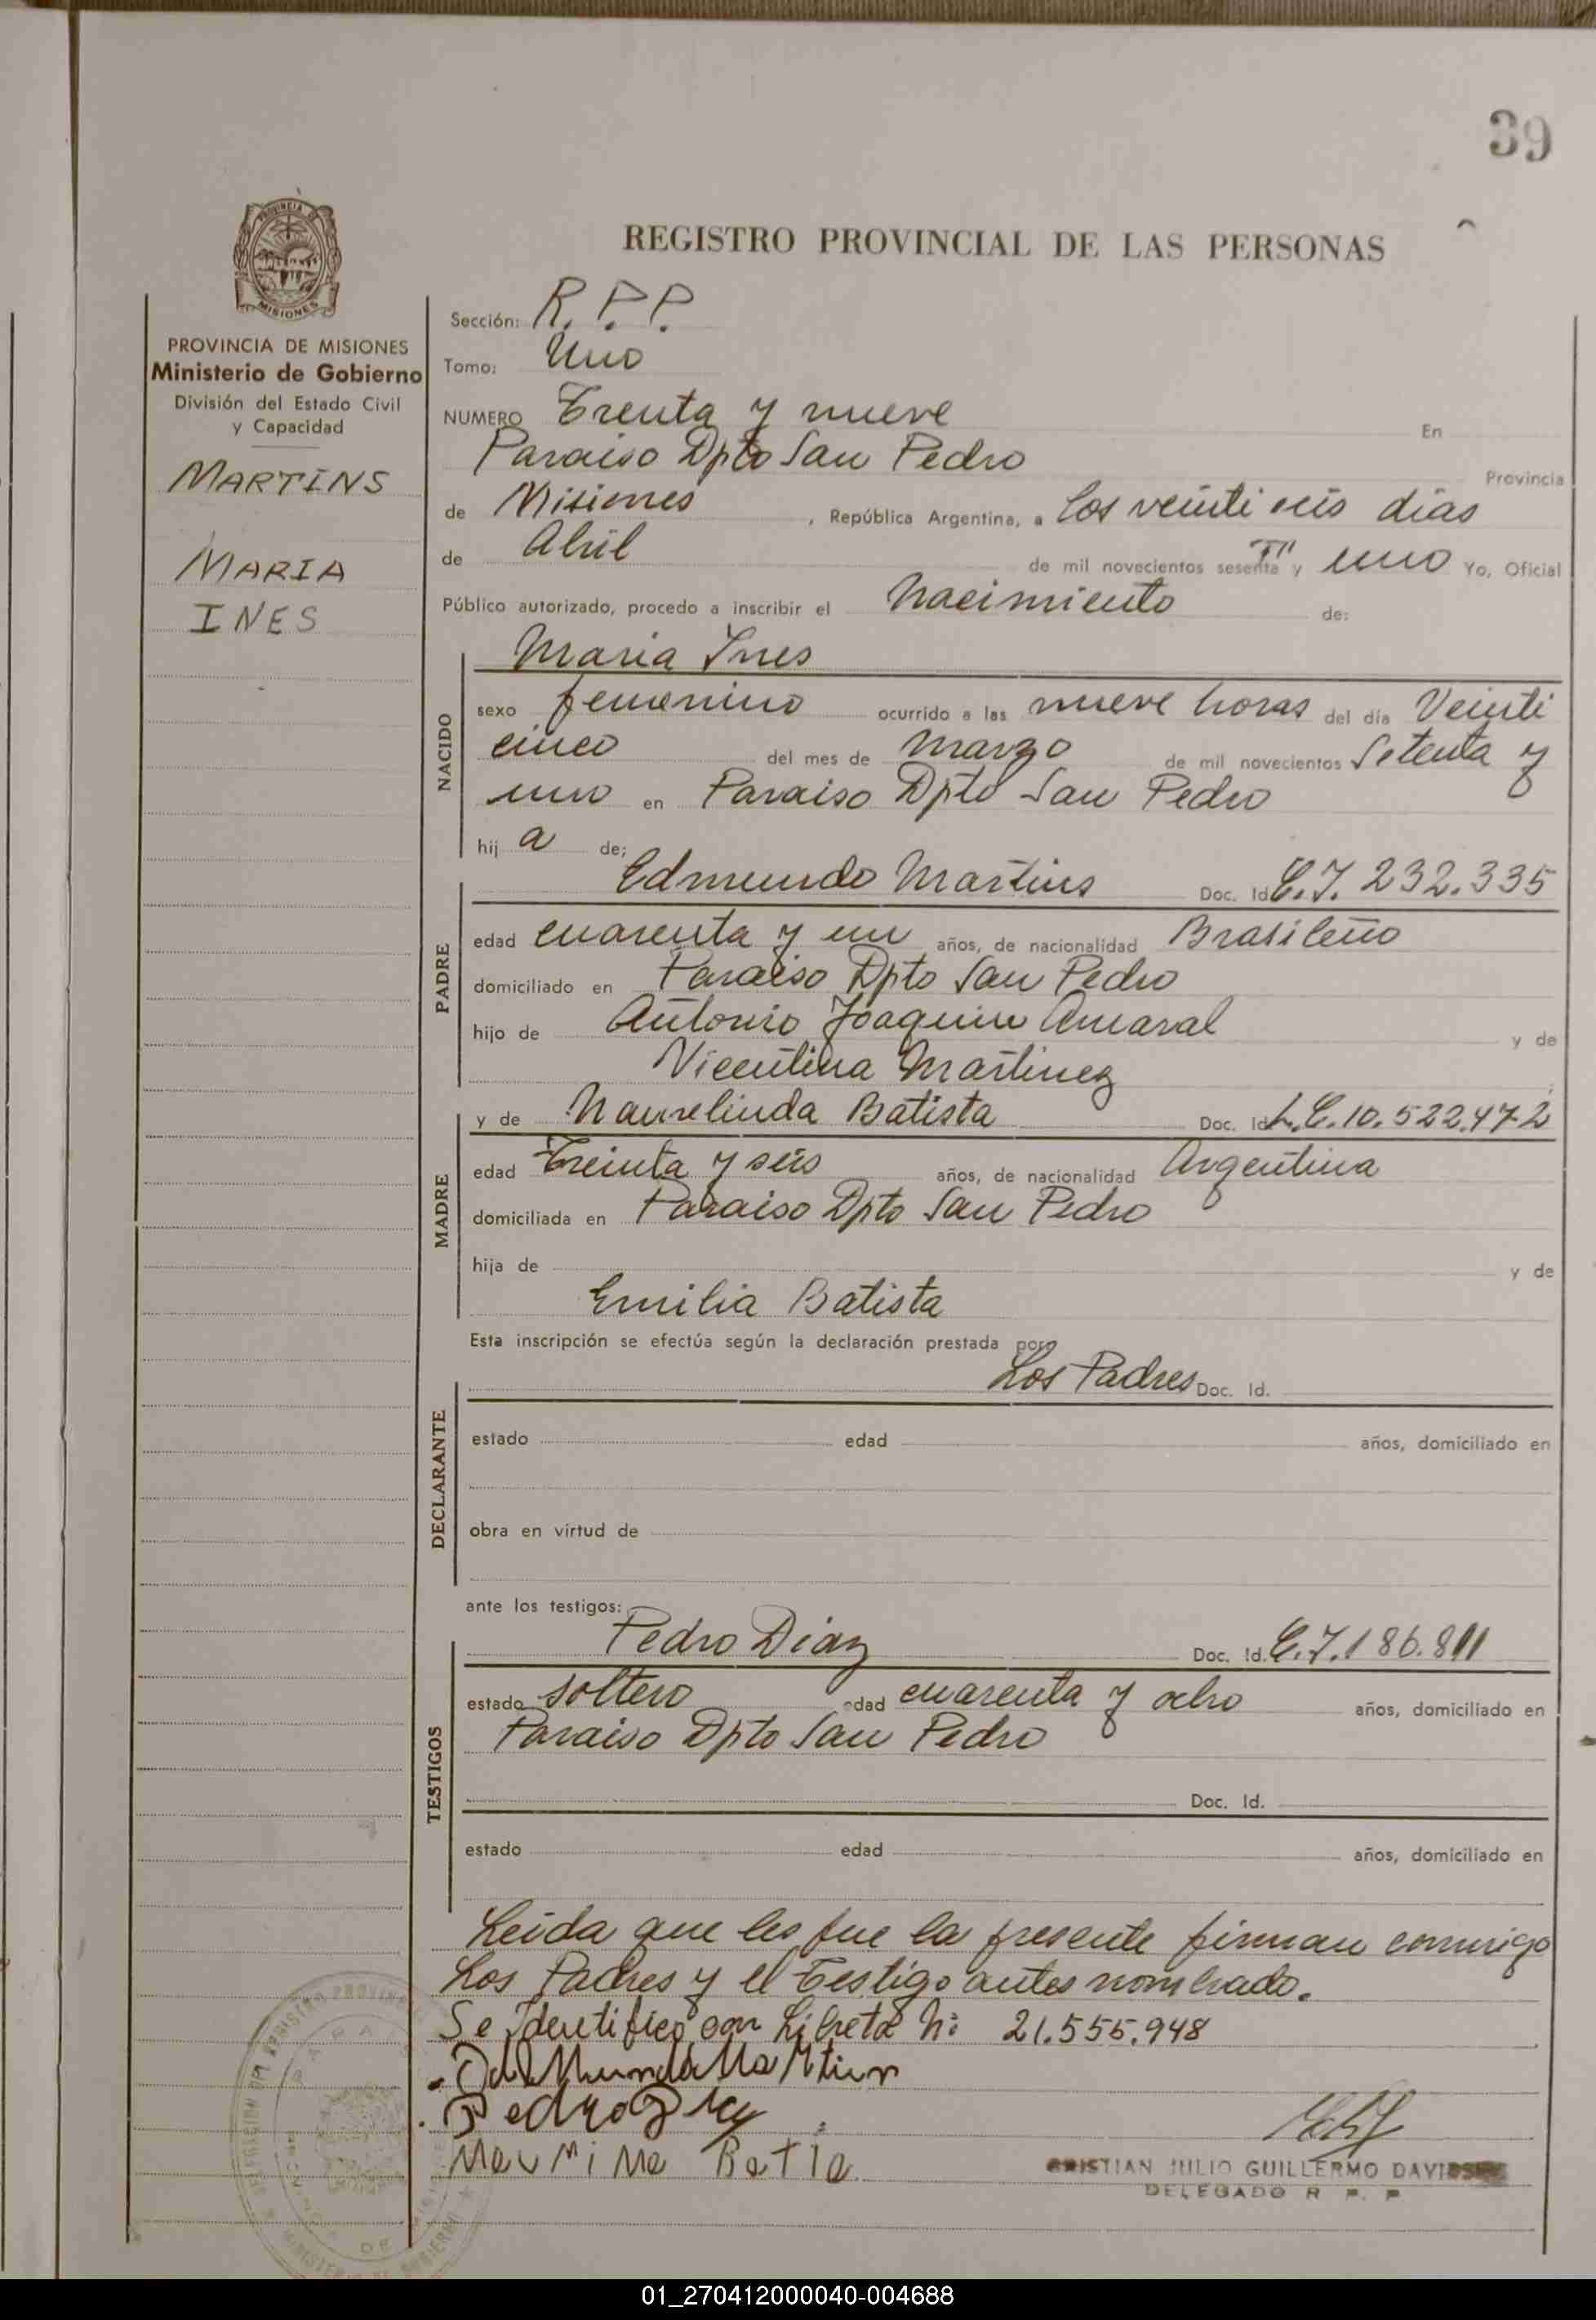 39
REGISTRO PROVINCIAL DE LAS PERSONAS
PROVINCIA DE MISIONES
Ministerio de Gobierno
División del Estado Civil
y Capacidad
MARTINS
MARIA
INES
Sección: R.P.P.
Tomo: Uno
NUMERO Trenta y nueve En
Paraiso Dpto San Pedro Provincia
de Misiones, República Argentina, a los veinti seis días
de Abril de mil novecientos sesenta y uno Yo, Oficial
Público autorizado, procedo a inscribir el Nacimiento de:
Maria Ynes
NACIDO
sexo femenino ocurrido a las nueve horas del día Veinti
cinco del mes de Marzo de mil novecientos Setenta y
uno en Paraiso Dpto San Pedro
hij a de;
Edmundo Martins Doc. Id C.I. 232.335
PADRE
edad cuarenta y un años, de nacionalidad Brasileño
domiciliado en Paraiso Dpto San Pedro
hijo de Antonio Joaquin Amaral y de
Vicentina Martinez
y de Batista Doc. Id L.C. 10.522.472
MADRE
edad Treinta y seis años, de nacionalidad Argentina
domiciliada en Paraiso Dpto San Pedro
hija de y de
Emilia Batista
Esta inscripción se efectúa según la declaración prestada por:
Los Padres Doc. Id.
DECLARANTE
estado edad años, domiciliado en
obra en virtud de
ante los testigos:
Pedro Diaz Doc. Id. C.I. 186.811
TESTIGOS
estado soltero edad cuarenta y ocho años, domiciliado en
Paraiso Dpto San Pedro
Doc. Id.
estado edad años, domiciliado en
Leida que les fue la presente firman conmigo
Los Padres y el Testigo antes nombrado.
Se Identifico con Libreta Nº 21.555.948
CRISTIAN JULIO GUILLERMO
DELEGADO R. P. P.
01_270412000040-004688